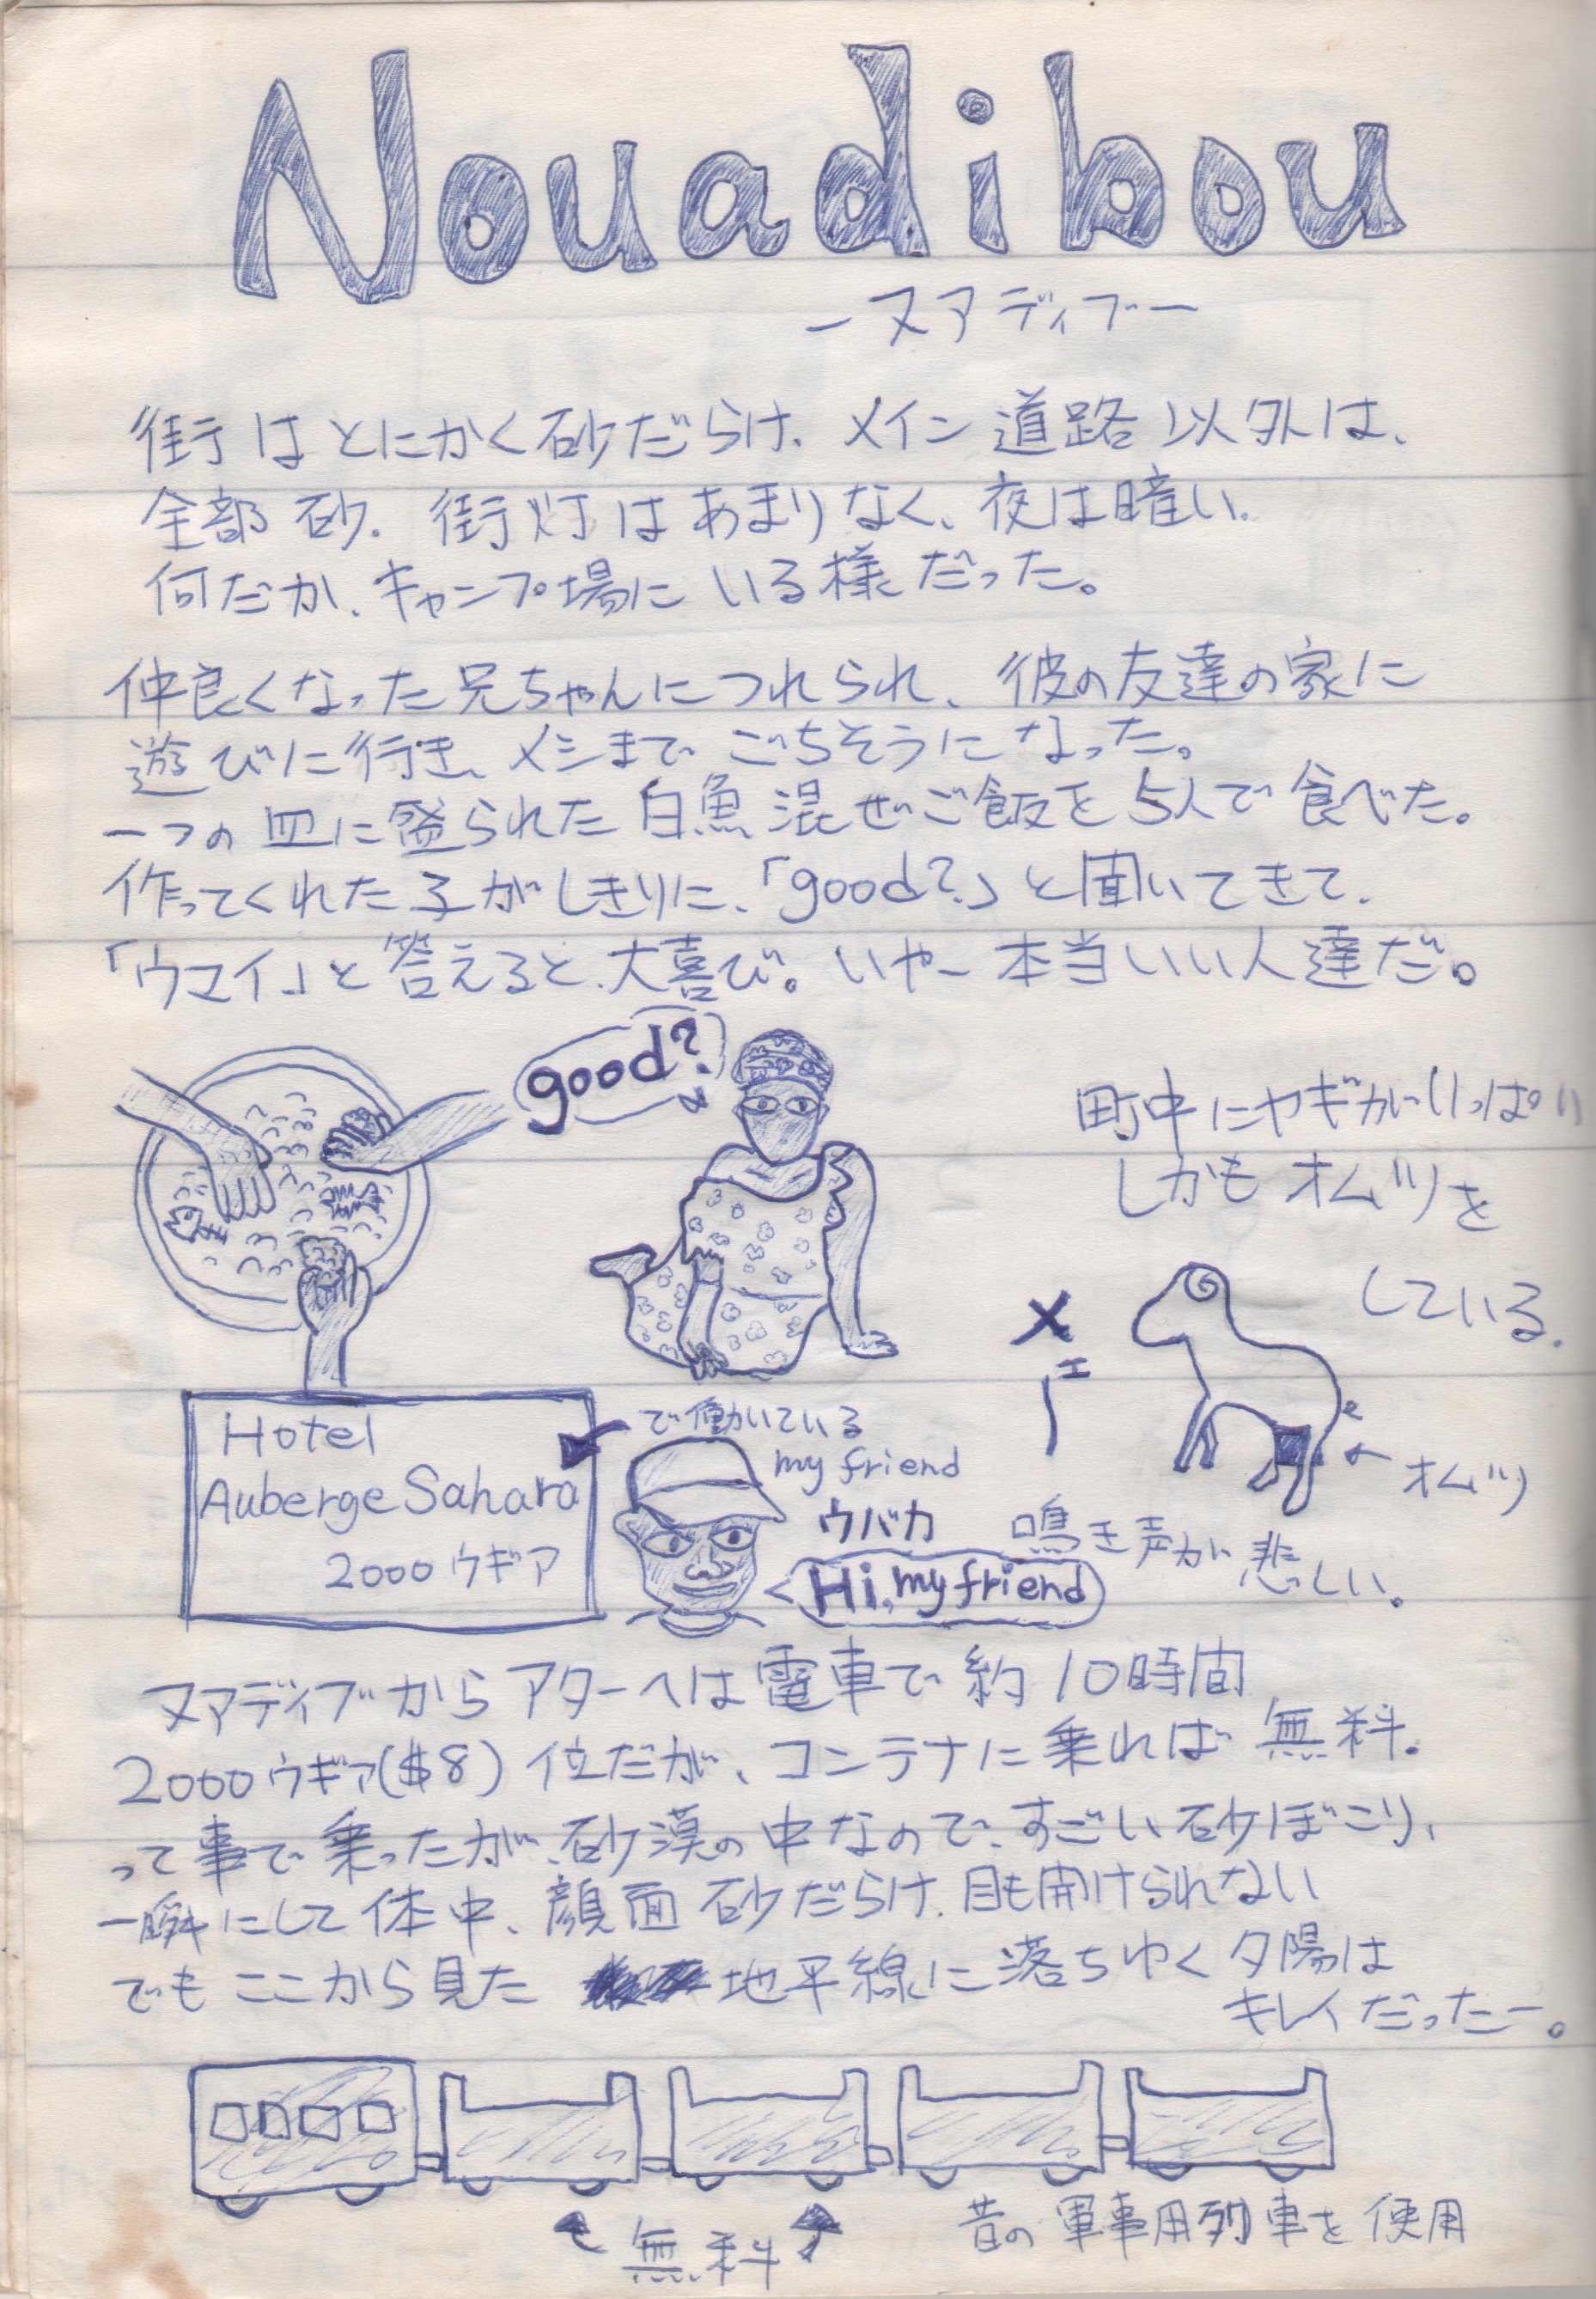 Nouadibou
ーヌアディブー
街はとにかく砂だらけ、メイン道路以外は、
全部砂. 街灯はあまりなく、夜は暗い.
何だか、キャンプ場にいる様だった。
仲良くなった兄ちゃんにつれられ、彼の友達の家に
遊びに行き、メシまでごちそうになった。
一つの皿に盛られた白魚混ぜご飯を5人で食べた。
作ってくれた子がしきりに、「good?」と聞いてきて、
「ウマイ」と答えると、大喜び。いやー本当いい人達だ。
good?
町中にヤギがいっぱい
しかもオムツを
している.
メェー
オムツ
鳴き声が悲しい。
Hotel
Auberge Sahara
2000 ウギア
で働いている
my friend
ウバカ
Hi, my friend
ヌアディブからアターへは電車で約10時間
2000ウギア($8)位だが、コンテナに乗れば無料。
って事で乗ったが、砂漠の中なので、すごい砂ぼこり、
一瞬にして体中、顔面砂だらけ、目も開けられない
でもここから見た 地平線に落ちゆく夕陽は
キレイだったー。
無料
昔の軍事用列車を使用